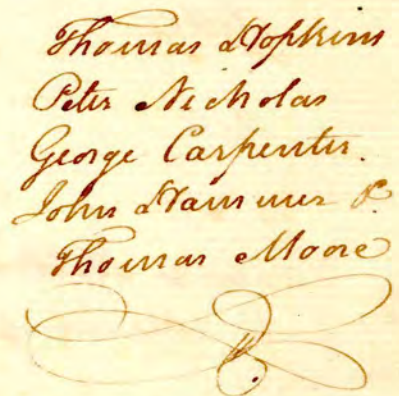 Thomas Hopkins
Peter Nicholas
George Carpenter.
John Hammer &
Thomas Moore